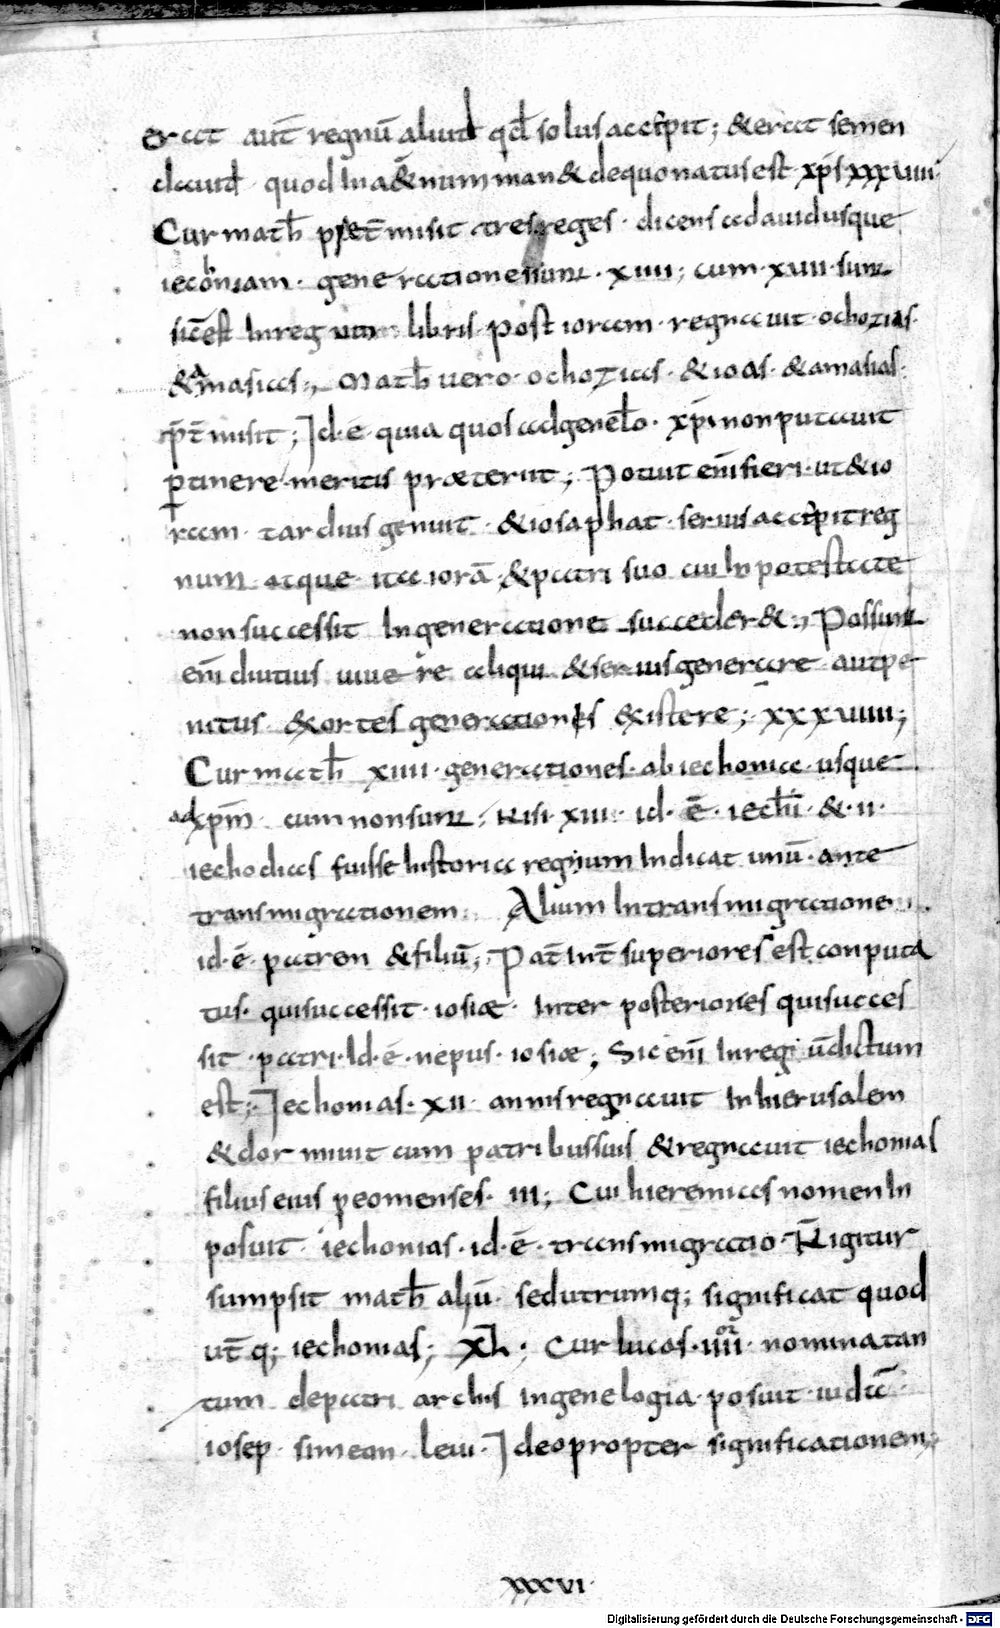 erat aut̄ regnū aliud qđ solus accepit; & erat semen
dauid quod In ae&ernum man& de quo natus est xp̄s xxxuiiii
Cur math̄ pret̄misit tres reges · dicens a dauid usque
iechoniam · generationes sunt · xiiii; cum · xuii · sunt
sic̄ est In regum libris post ioram · regnauit · ochozias ·
& amasias ·, Math̄ uero · ochozias · & ioas · & amasias ·
p̄t̄misit; Id · ē · quia quos ad genelo · xp̄i non putauit
ptinere · meritis præteriit; Potuit enī fieri · ut & io
ram · tardius genuit · & iosaphat · serius accepit reg
num atque ita iorā · & patri suo cui In potestate
non successit In generatione succeder& ·, Possunt
enī diutius uiuere aliqui & serius generare aut pe
nitus · exortes generationis existere; xxxuiiii;
Cur math̄ xiiii · generationes · ab iechonia · usque
ad xp̄m · cum non sunt, nisi · xiii · id · ē · iech̄i · & · ii ·
iechodias fuisse historia regnum Indicat unū · ante
transmigrationem · Alium In transmigratione
id · ē · patrem & filiū; Pat̄ Int̄ superiores est conputa
tus · qui successit · iosiæ · Inter posteriores qui succes
sit · patri · Id · ē · nepus · iosiæ; Sic enī In regū dictum
est; Iechonias · xii · annis regnauit In hierusalem
& dormiuit cum patribus suis & regnauit iechonias
filius eius p eo menses · iii; Cui hieremias nomen In
posuit · iechonias · id · ē · transmigratio · N̄ igitur
sumpsit math̄ aliū · sed utrumq; significat quod
ut̄q; iechonias; XL; Cur lucas · iiiior · nomina tan
tum de patriarchis in genelogia posuit · iudā
iosep · simeon · leui · Ideo propter significationem;
xxxvi ·
Digitalisierung gefördert durch die Deutsche Forschungsgemeinschaft · DFG